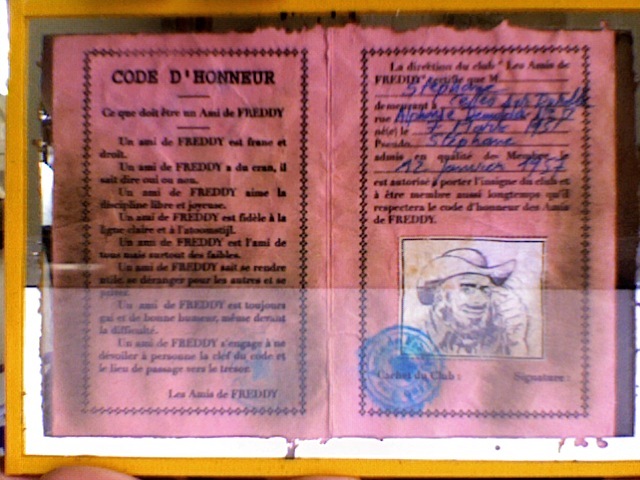 CODE D'HONNEUR
Ce que doit être un Ami de FREDDY
Un ami de FREDDY est franc et
droit.
Un ami de FREDDY a du cran, il
sait dire oui ou non.
Un ami de FREDDY aime la
discipline libre et joyeuse.
Un ami de FREDDY est fidèle à la
ligne claire et à l'atoomstijl.
Un ami de FREDDY est l'ami de
tous mais surtout des faibles.
Un ami de FREDDY sait se rendre
utile, se déranger pour les autres et se
Un ami de FREDDY est toujours
gai et de bonne humeur, même devant
la difficulté.
Un ami de FREDDY s'engage à ne
dévoiler à personne la clef du code et
le lieu de passage vers le trésor.
Les Amis de FREDDY
La direction du club " Les Amis de
FREDDY" certifie que M
Stéphane
demeurant à
rue Alphonse
né(e) le 7 Mars 1957
Pseudo. Stéphane
admis en qualité de Membre le
12 janvier 1957
est autorisé à porter l'insigne du club et
à être membre aussi longtemps qu'il
respectera le code d'honneur des Amis
de FREDDY.
Cachet du Club :
Signature :